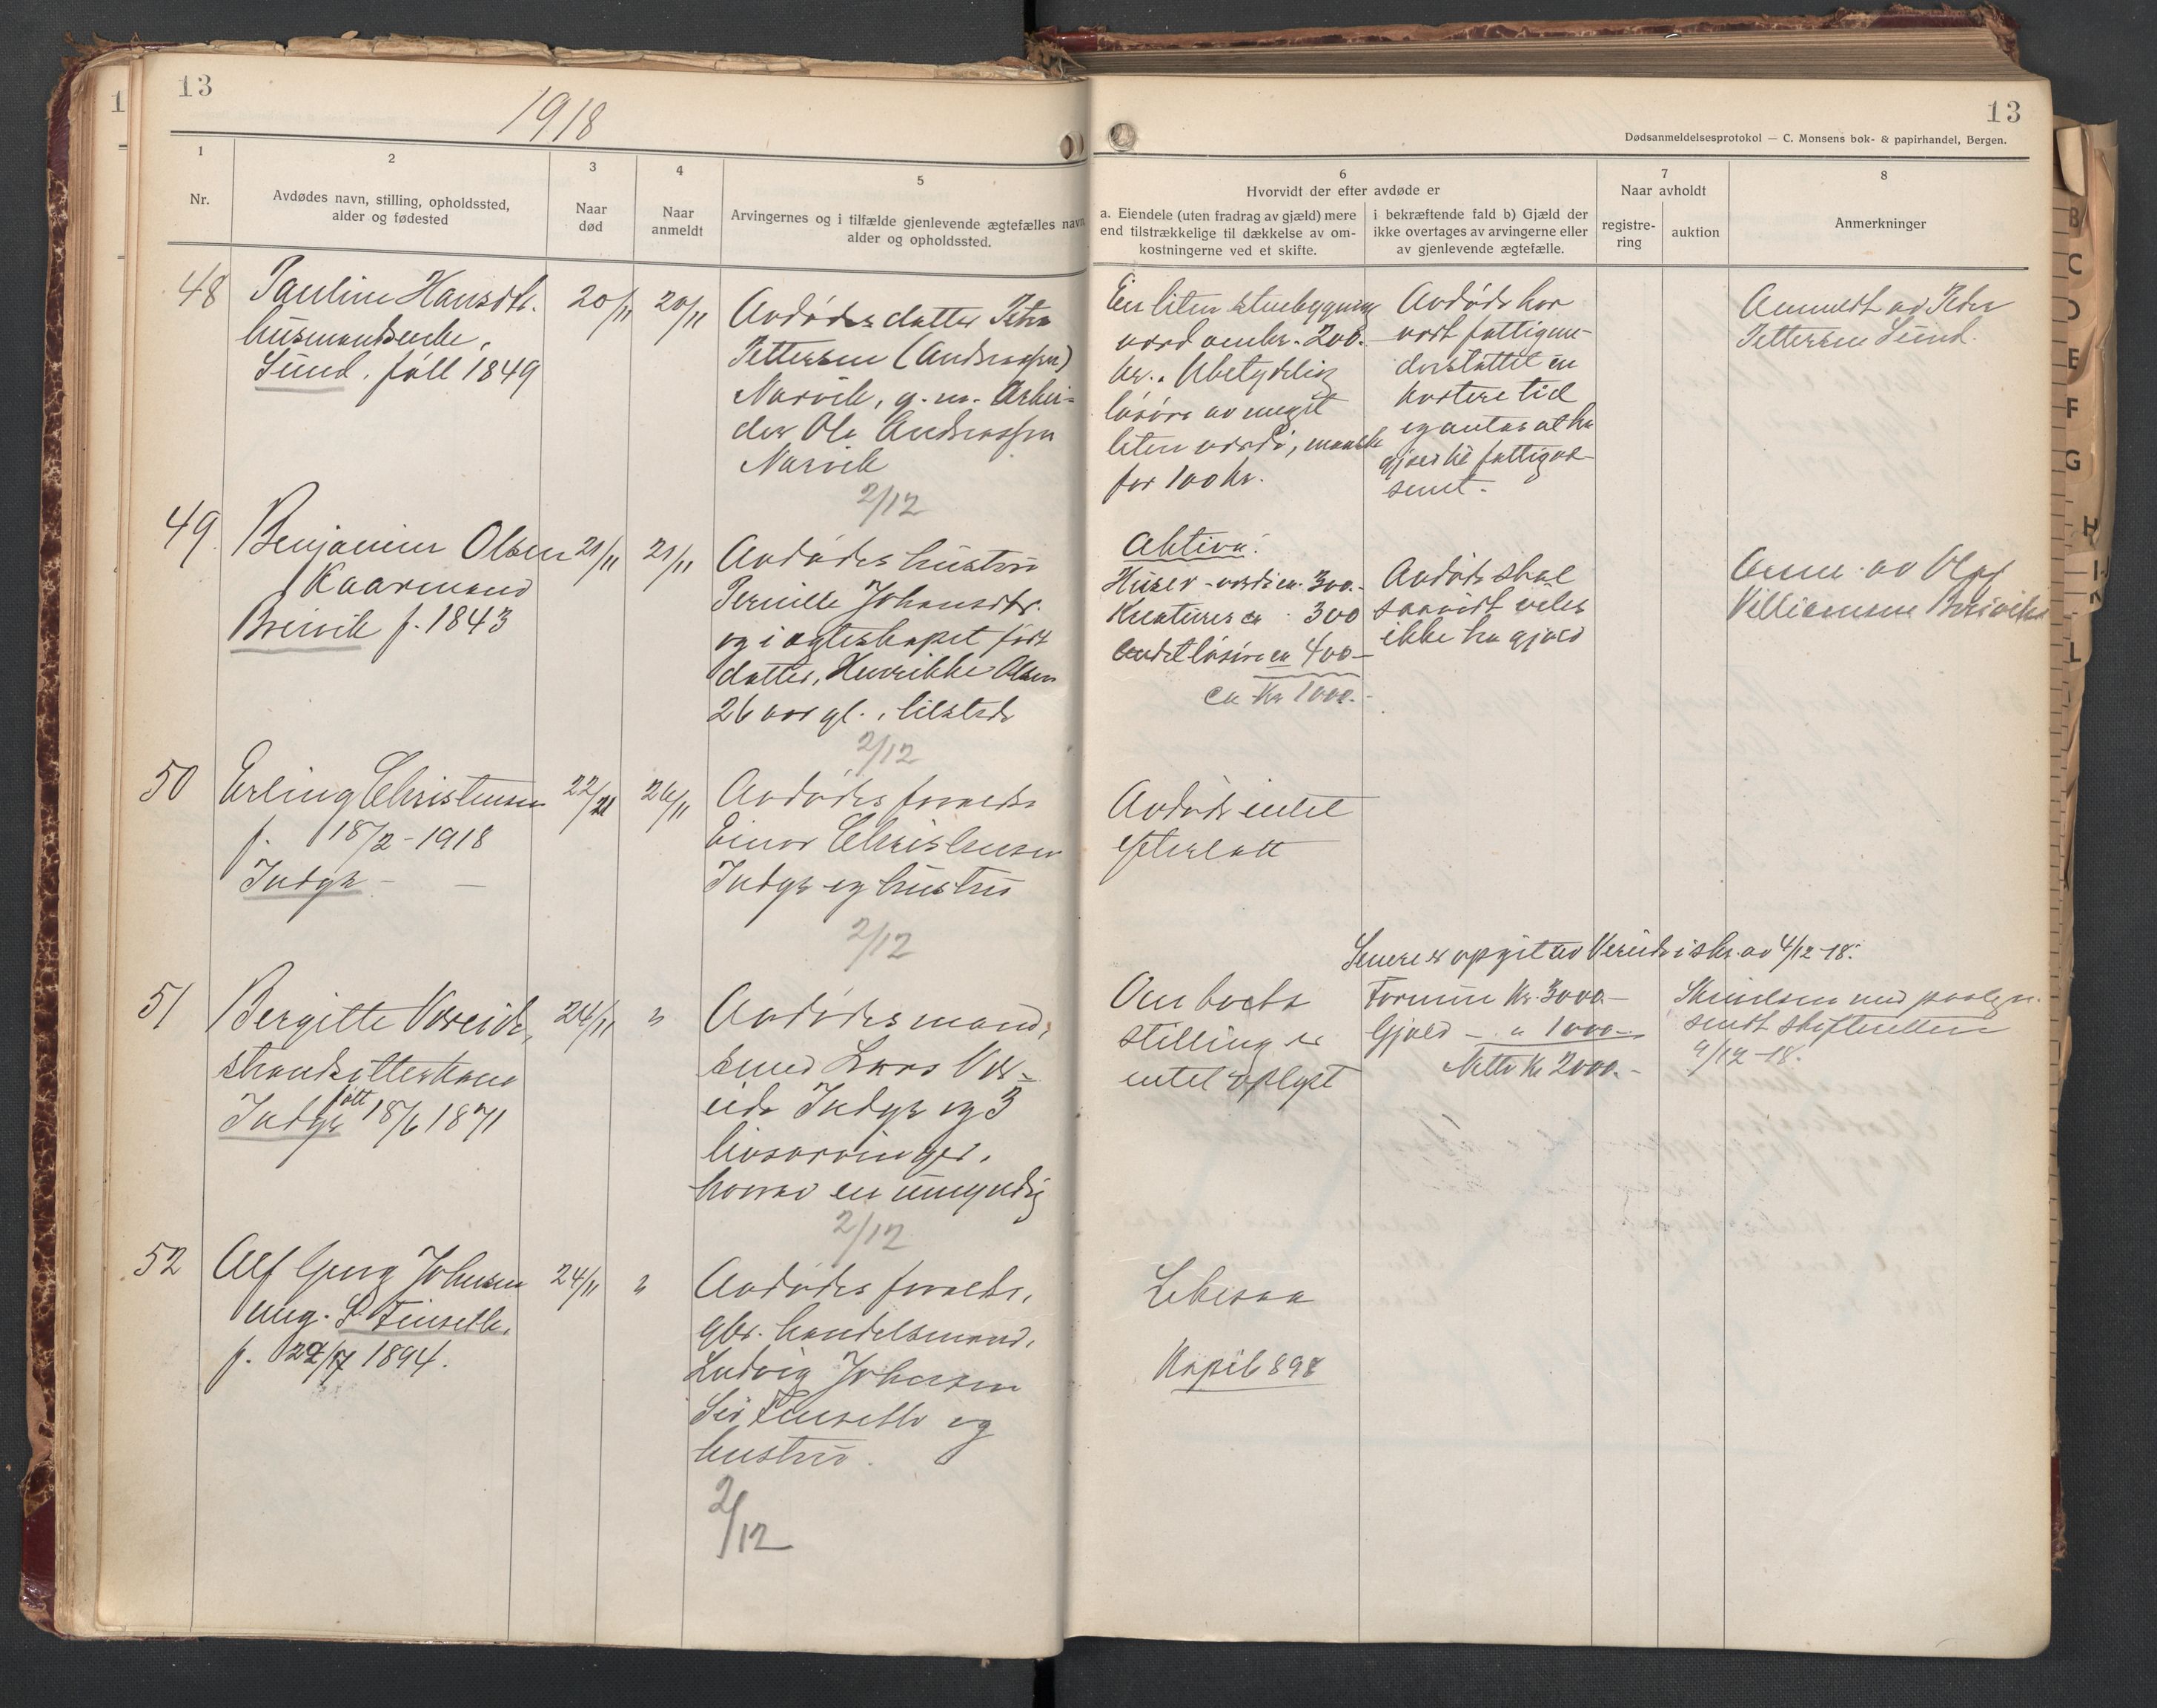 13
1918
1
2
3
4
5
Nr.
Avdødes navn, stilling, opholdssted,
alder og fødested
Naar
død
Naar
anmeldt
Arvingernes og i tilfælde gjenlevende ægtefælles navn
alder og opholdssted.
48
Pauline Hansdtr.
husmandsenke,
Sund. født 1849
20/11
20/11
Avdødes datter Petra
Pettersen (Andreassen)
Narvik, g. m. Arbei-
der Ole Andreassen
Narvik
2/12
49.
Benjamin Olsen
Kaarmand
Breivik f. 1843
21/11
21/11
Avdødes hustru
Pernille Johansdtr.
og i egteskapet født
datter, Henrikke Olsen
26 aar gl., tilstede
2/12
50
Erling Christensen
f. 18/2 - 1918
Indyr -
22/11
26/11
Avdødes forældre
Einar Christensen
Indyr og hustru
2/12
51
Bergitte Væreide,
strandsitterkone
Indyr født 18/6 1871
24/11
"
Avdødes mand,
smed Lars Vær-
eide Indyr og 3
livsarvinger,
hvorav en umyndig
2/12
52
Alf Georg Johnsen
ung. S. Finseth.
f. 1894.
24/11
"
Avdødes forældre,
gbr. handelsmand,
Ludvig Johnsen
Finseth og
hustru.
2/12
13
Dødsanmeldelsesprotokol — C. Monsens bok- & papirhandel, Bergen.
6
Hvorvidt der efter avdøde er
a. Eiendele (uten fradrag av gjæld) mere
end tilstrækkelige til dækkelse av om-
kostningerne ved et skifte.
i bekræftende fald b) Gjæld der
ikke overtages av arvingerne eller
av gjenlevende ægtefælle.
7
Naar avholdt
registre-
ring
auktion
8
Anmerkninger
En liten stuebygning
værd omkr. 200.-
kr. Ubetydelig
løsøre av meget
liten værdi, maaske
for 100 kr.
Avdøde har
vært fattigun-
derstøttet en
kortere tid
og antas at ha
gjæld til fattigvæ-
senet.
Anmeldt av Peder
Pettersen Sund.
Aktiva:
Huser - værdi ca. 300.-
Kreaturer ca. 300
Andet løsøre ca 400 -
ca Kr 1000.-
Avdøde skal
saavidt vites
ikke ha gjæld
Anm. av Olaf
Villiamsen Breivik
Avdøde intet
efterlatt
Senere er opgit av Væreide i skr. av 4/12-18:
Om boets
stilling er
intet oplyst
Formue Kr. 3000.-
Gjæld - " 1000.-
Netto Kr 2000.-
sendt skifteretten
9/12-18.
Likesaa
Kapil 898
B
C
D
E
F
G
H
L